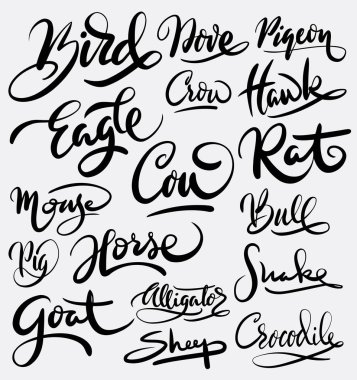 Bird Dove Pigeon
Crow Hawk
Eagle Cow Rat
Mouse Bull
Pig Horse Snake
Goat Alligator
Sheep Crocodile